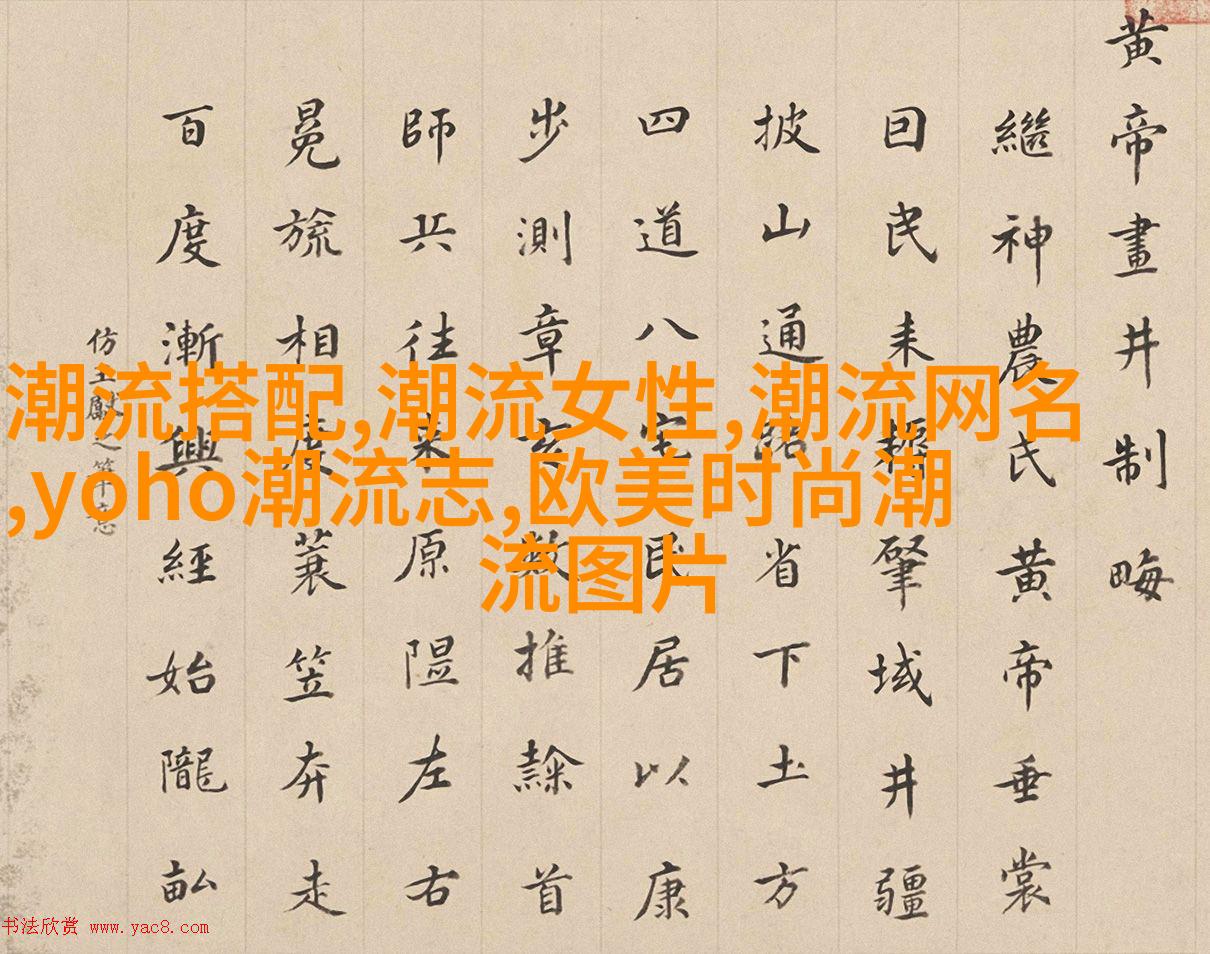 黄帝畫井制畮
繼神農氏黄帝垂裳
囙民耒耨肇域井疆
披山通路省下土方
四道八宅民居以康
步測章亥數推隸首
師兵往来原隰左右
冕旒相度蓑笠奔走
百度漸興經始隴畆
仿王獻之筆意
潮流搭配,潮流女性,潮流网名
,yoho潮流志,欧美时尚潮
流图片
书法欣赏 www.yac8.com